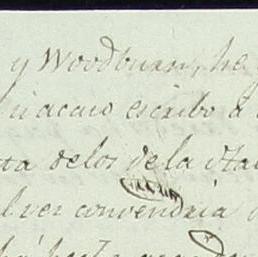 y Woodburn, he
si acaso escribo a
ta de los de la Ita
l vez convendria